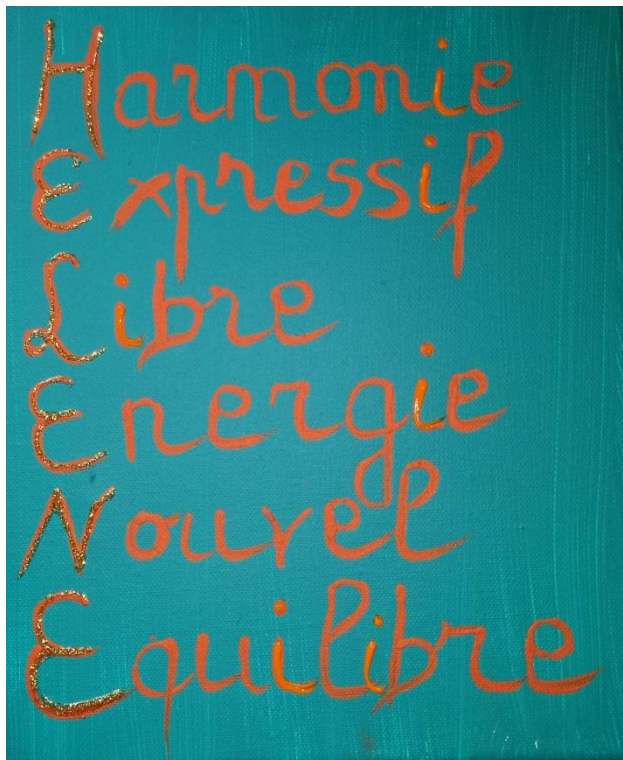 Harmonie
Expressif
Libre
Energie
Nouvel
Equilibre